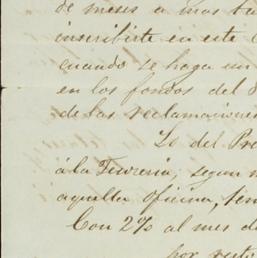 de meses a mas ta
inscribirte en este
cuando se haga un
en los fondos del
de las reclamaciones
Lo del Pre
á la Tesoreria, segun
aquella oficina,
Con 2% al mes d
por